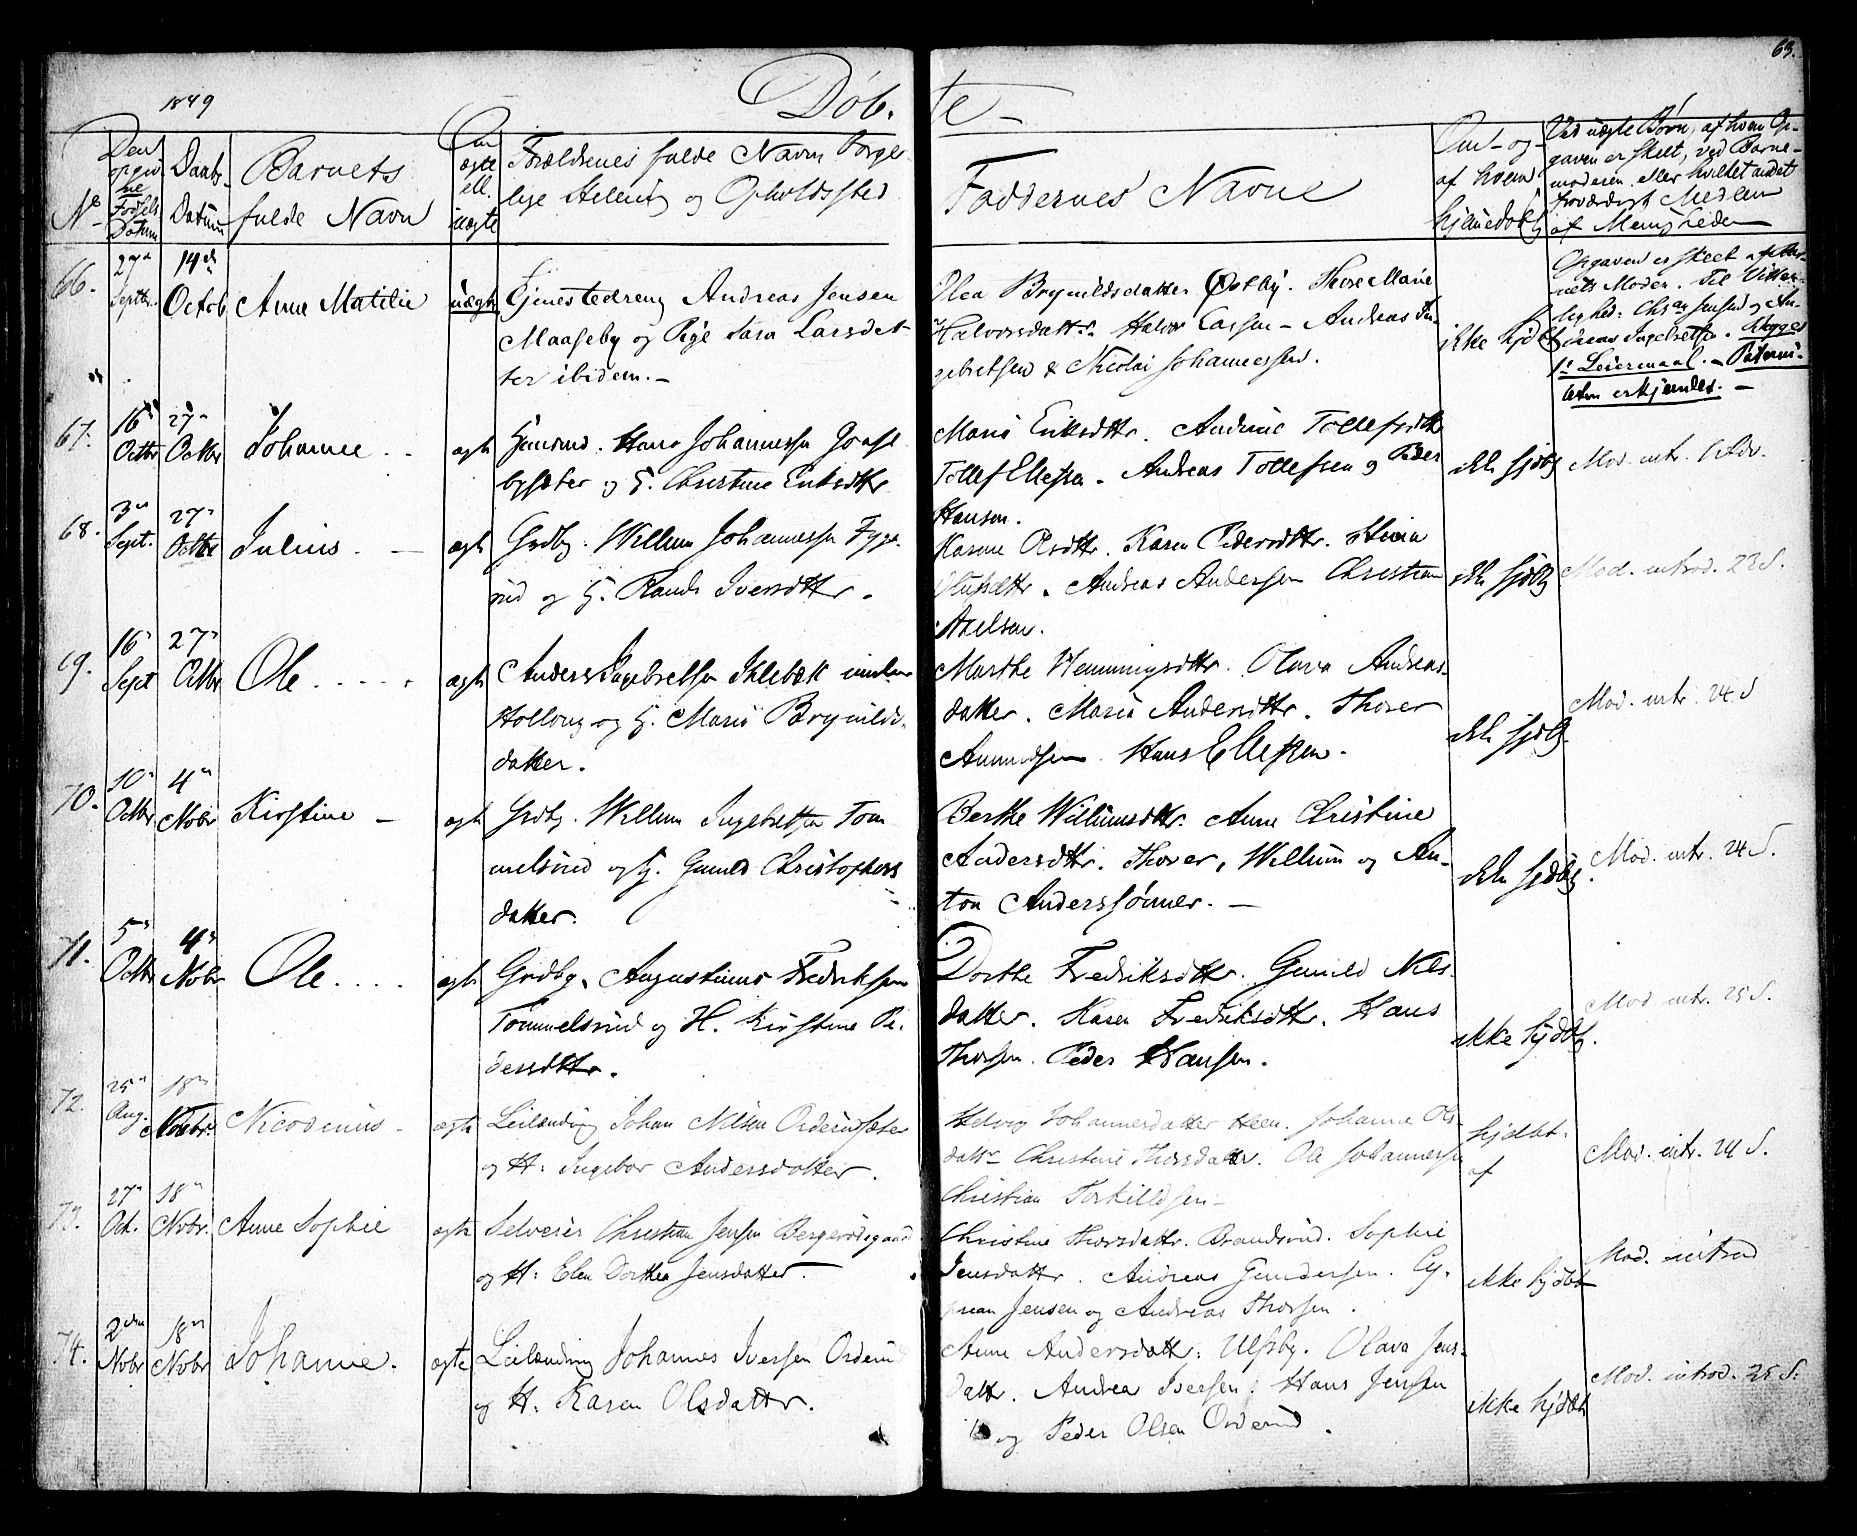 63.
1849
Døb. te
No
Den opgivne Fødsels Datum
Daabs-Datum
Barnets fulde Navn
Om ægte ell. uægte
Forældrenes fulde Navn Borgerlige Stilling og Opholdssted
Faddernes Navne
Om- og af hvem hjemedøbt
Ved uægte Børn, af hvem Opgaven er skeet, ved Barnemoderen eller hvilket andet troværdigt Medlem af Menigheden
66.
27n Septbr.
14de Octob
Anne Matilie
uægte
Tjenestedreng Andreas Jensen
Maaseby og Pige Sara Larsdat-
ter ibidem. -
Olea Brynildsdatter Østby. Thore Marie
Halvorsdattr. Halvor Larsen - Andreas In-
gebretsen & Nicolai Johannessen.
ikke hjdbt
Opgaven er skeet af Bar-
nets Moder. Til Vitter-
lighed: Chran Jensen og An-
dreas Ingebretsen. Begges
1st Leiermaal. - Paterni-
teten erkjendes. -
67.
16n Octbr
27n Octbr
Johanne . -
ægte
Hans Johannessen
og H. Christine Eriksdttr
Maria Eriksdttr. Andrine Tollefsdttr
Tollef Ellefsen. Andreas Tollefsen og Peder
Hansen.
ikke hjdbt
Mod. intr.
68.
3n Sept.
27n Octbr
Julius. -
ægte
Grdbr. Willum Johannessen
og H. Randi Iversdttr.
Karine Olsdttr. Karen Pedersdttr.
Olufsdttr. Andreas Andersen Christian
Axelsen.
ikke hjdbt
Mod. introd. 23 S.
69.
16n Sept
27n Octbr
Ole . . . . .
ægte
Anders Ingebretsen Iklebæk
og H. Maria Brynilds-
datter.
Marthe Hemmingsdttr. Olava Andreas-
datter. Maria Andersdttr. Thorer
Amundsen. Hans Ellefsen.
ikke hjdbt
Mod. intr. 24 S
70.
10n Octbr
4n Nobr
Kirstine -
ægte
Grdbr. Willum Ingebretsen Tom
melsrud og H. Gunild Christophers
datter.
Berthe Willumsdttr. Anne Christine
Andersdttr. Thorer, Willum og An-
ton Anderssønner. -
ikke hjdbt
Mod. intr. 24 S.
71.
5n Octbr
4n Nobr
Ole . . . .
ægte
Grdbr. Augustinus Fredriksen
Tommelsrud og H. Kirstine Pe-
dersdttr.
Dorthe Fredriksdttr. Gunild Nils-
datter. Karen Fredriksdttr. Hans
Thorsen. Peder Hansen.
ikke hjdbt.
Mod. intr. 25 S.
72.
25n Aug.
18n Novbr.
Nicodemus -
ægte
Leilænding Johan Nilsen Orderudsæter
og H: Ingebor Andersdatter.
Helvig Johannesdatter Heen. Johanne Ols-
dattr Christine Thorsdatter. Ole Johannessen
Christian Torkildsen -
hjdbt. af
Mod. intr. 24 S.
73.
27n Oct.
18n Nobr.
Anne Sophie
ægte
Selveier Christian Jensen Bergerudsgaard
og H: Elen Dorthea Jensdatter. -
Christine Thorsdattr. Brandsrud. Sophie
Jensdattr. Andreas Gundersen. Cy-
prian Jensen og Andreas Thorsen.
ikke hjdbt
Mod. introd
74.
2den Nobr
18n Nobr
Johanne.
ægte
Leilænding Johannes Iversen Orderud
og H. Karen Olsdattr.
Anne Andersdattr: Ulfsby. Olava Jens-
dattr. Andrea Iversen. Hans Jensen
og Peder Olsen Orderud.
ikke hjdbt
Mod. introd. 25 S.